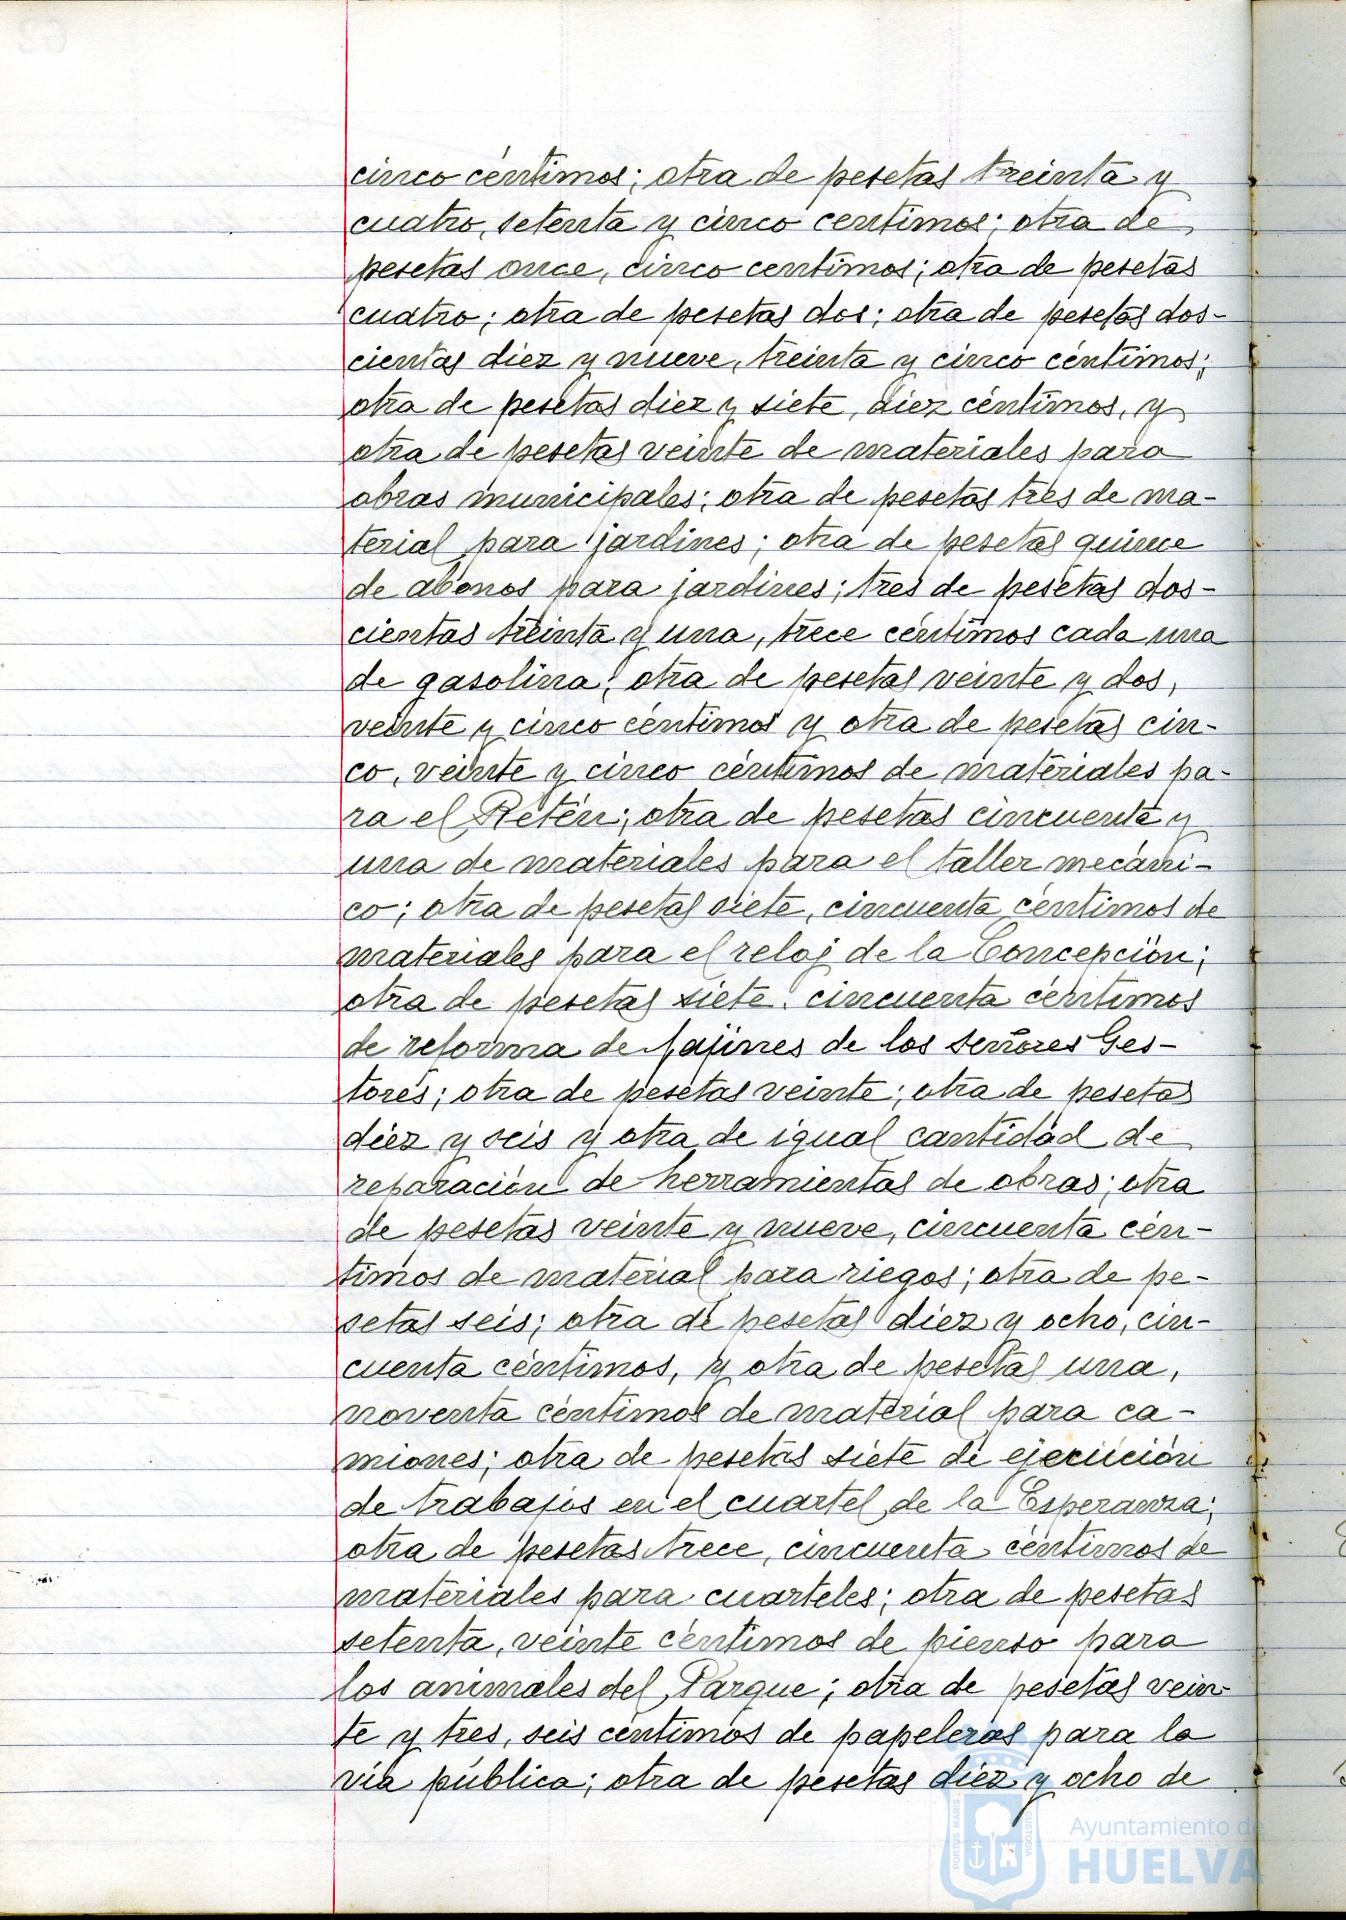 cinco céntimos; otra de pesetas treinta y
cuatro, setenta y cinco centimos; otra de
pesetas once, cinco centimos; otra de pesetas
cuatro; otra de pesetas dos; otra de pesetas dos-
cientas diez y nueve, treinta y cinco céntimos;
otra de pesetas diez y siete, diez céntimos, y
otra de pesetas veinte de materiales para
obras municipales; otra de pesetas tres de ma-
terial para jardines; otra de pesetas quince
de abonos para jardines; tres de pesetas dos-
cientas treinta y una, trece céntimos cada una
de gasolina; otra de pesetas veinte y dos,
veinte y cinco céntimos y otra de pesetas cin-
co, veinte y cinco céntimos de materiales pa-
ra el Retén; otra de pesetas cincuenta y
una de materiales para el taller mecáni-
co; otra de pesetas siete, cincuenta céntimos de
materiales para el reloj de la Concepción;
otra de pesetas siete. cincuenta céntimos
de reforma de fajines de los señores Ges-
tores; otra de pesetas veinte; otra de pesetas
diez y seis y otra de igual cantidad de
reparación de herramientas de obras; otra
de pesetas veinte y nueve, cincuenta cén-
timos de material para riegos; otra de pe-
setas seis; otra de pesetas diez y ocho, cin-
cuenta céntimos, y otra de pesetas una,
noventa céntimos de material para ca-
miones; otra de pesetas siete de ejecución
de trabajos en el cuartel de la Esperanza;
otra de pesetas trece, cincuenta céntimos de
materiales para cuarteles; otra de pesetas
setenta, veinte céntimos de pienso para
los animales del Parque; otra de pesetas vein-
te y tres, seis céntimos de papeleras para la
vía pública; otra de pesetas diez y ocho de
PORTUS MARIS
CUSTODIA
Ayuntamiento de
HUELVA